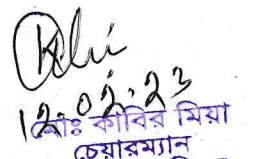 12.02.23
মোঃ কাবির মিয়া
চেয়ারম্যান